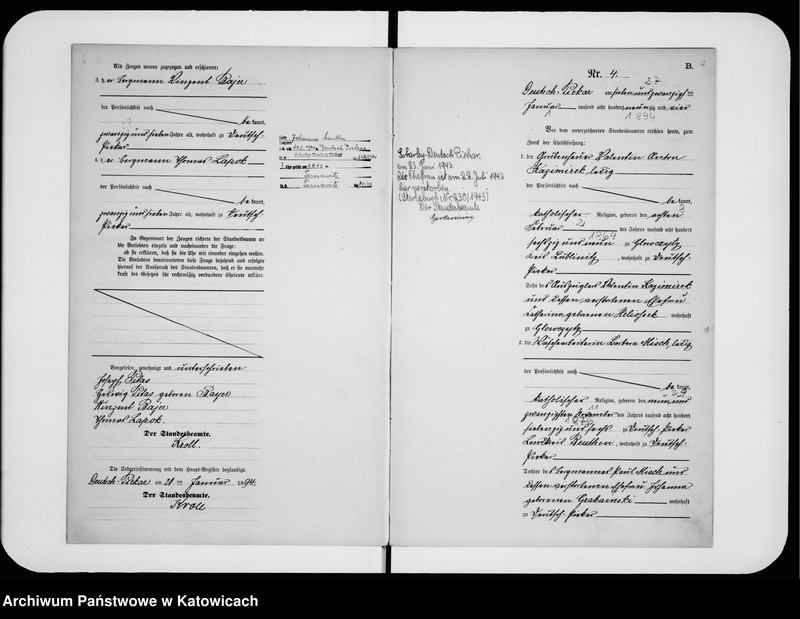 6
Als Zeugen waren zugezogen und erschienen:
3. der Bergmann Vinzent Bajer
der Persönlichkeit nach
be kannt,
zwanzig und sieben Jahre alt, wohnhaft zu Deutsch-
Piekar
4. der Bergmann Thomas Lapok
der Persönlichkeit nach
be kannt,
zwanzig und sieben Jahre alt, wohnhaft zu Deutsch-
Piekar
In Gegenwart der Zeugen richtete der Standesbeamte an
die Verlobten einzeln und nacheinander die Frage:
ob sie erklären, daß sie die Ehe mit einander eingehen wollen.
Die Verlobten beantworteten diese Frage bejahend und erfolgte
hierauf der Ausspruch des Standesbeamten, daß er sie nunmehr
kraft des Gesetzes für rechtmäßig verbundene Eheleute erkläre.
Vorgelesen, genehmigt und unterschrieben
Joseph Pitas
Hedwig Pitas geboren Bajer
Vinzent Bajer
Thomas Lapok
Der Standesbeamte.
Kroll.
Die Uebereinstimmung mit dem Haupt-Register beglaubigt.
Deutsch-Piekar am 21 ten Januar 1894.
Der Standesbeamte.
Kroll
Johanna
Deutsch Piekar
Scharley-Deutsch Piekar
am 23. Juni 1943
Die Ehefrau ist am 22. Juli 1943
hier verstorben.
(Sterbebuch Nr. 230/1943)
Der Standesbeamte
B.
7
Nr. 4.
27
Deutsch-Piekar am sieben und zwanzigsten
Januar tausend acht hundert neunzig und vier
1 1894
Vor dem unterzeichneten Standesbeamten erschien heute, zum
Zweck der Eheschließung:
1. der Grubenhäuer Valentin Anton
Kazimierek ledig
der Persönlichkeit nach
be kannt,
katholischer Religion, geboren den achten
8
Februar 2 des Jahres tausend acht hundert
1869
sechzig und neun zu Glowczytz
Kreis Lublinitz, wohnhaft zu Deutsch-
Piekar
Sohn des Auszüglers Valentin Kazimierek
und dessen verstorbenen Ehefrau
Catharina geborenen wohnhaft
zu Glowczytz
2. die Wäschearbeiterin Barbara Misch, ledig
der Persönlichkeit nach
be kannt,
katholischer Religion, geboren den neun und
29
zwanzigsten November 11 des Jahres tausend acht hundert
1876
siebenzig und sechs zu Deutsch-Piekar
Landkreis Beuthen, wohnhaft zu Deutsch-
Piekar
Tochter des Bergmannes Paul Misch und
dessen verstorbenen Ehefrau Johanna
geborenen Grabainski wohnhaft
zu Deutsch-Piekar
Archiwum Państwowe w Katowicach